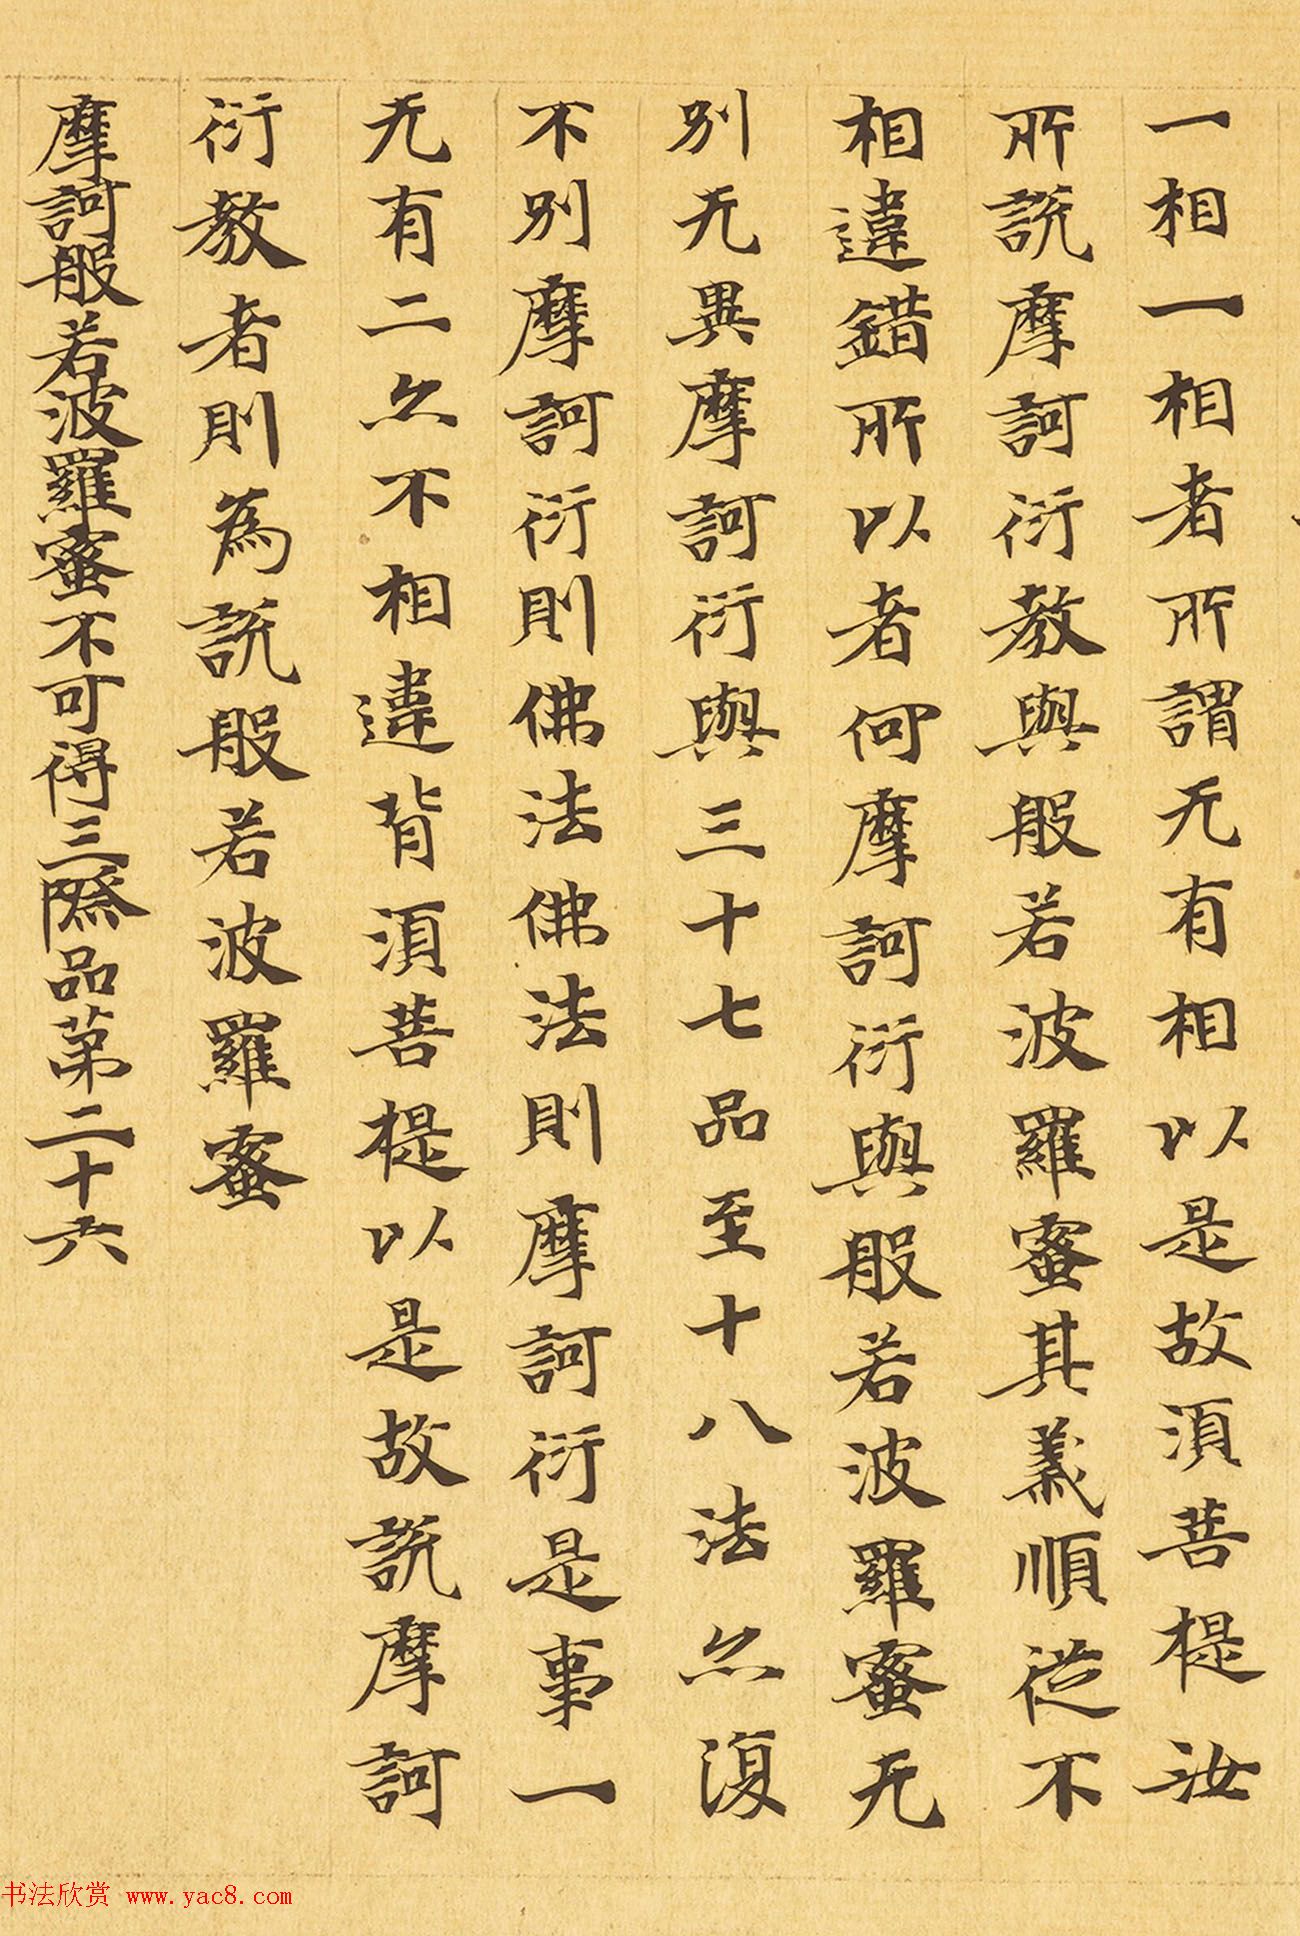 一相一相者所謂无有相以是故湏菩提汝
所説摩訶衍教與般若波羅蜜其義順従不
相違錯所以者何摩訶衍與般若波羅蜜无
別无異摩訶衍與三十七品至十八法亦復
不別摩訶衍則佛法佛法則摩訶衍是事一
无有二亦不相違背湏菩提以是故説摩訶
衍教者則為説般若波羅蜜
摩訶般若波羅蜜不可得三際品第二十六
书法欣赏 www.yac8.com